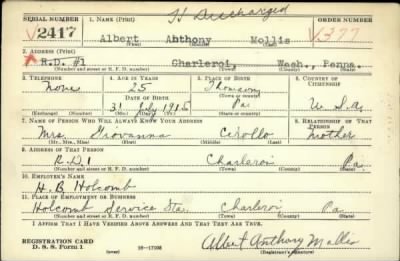 H Discharged
SERIAL NUMBER 1. NAME (Print)
2417 Albert Anthony Mollis V377
2. ADDRESS (Print)
R.D. #1 Charleroi, Wash., Penna.
(Number and street or R. F. D. number) (Town) (County) (State)
3. TELEPHONE 4. AGE IN YEARS 5. PLACE OF BIRTH 6. COUNTRY OF CITIZENSHIP
None 25 Thomson
DATE OF BIRTH
31 July 1915 Pa U.S.A.
(Exchange) (Number) (Mo.) (Day) (Yr.) (Town or county) (State or country)
7. NAME OF PERSON WHO WILL ALWAYS KNOW YOUR ADDRESS 8. RELATIONSHIP OF THAT PERSON
Mrs. Giovanna Cirollo Mother
(Mr., Mrs., Miss) (First) (Middle) (Last)
9. ADDRESS OF THAT PERSON
R.D.1 Charleroi Pa.
(Number and street or R. F. D. number) (Town) (County) (State)
10. EMPLOYER'S NAME
H.B. Holcomb
11. PLACE OF EMPLOYMENT OR BUSINESS
Holcomb Service Sta. Charleroi Pa.
(Number and street or R. F. D. number) (Town) (County) (State)
I AFFIRM THAT I HAVE VERIFIED ABOVE ANSWERS AND THAT THEY ARE TRUE.
REGISTRATION CARD
D. S. S. Form 1 16-17105 Albert Anthony Mollis
(Registrant's Signature)